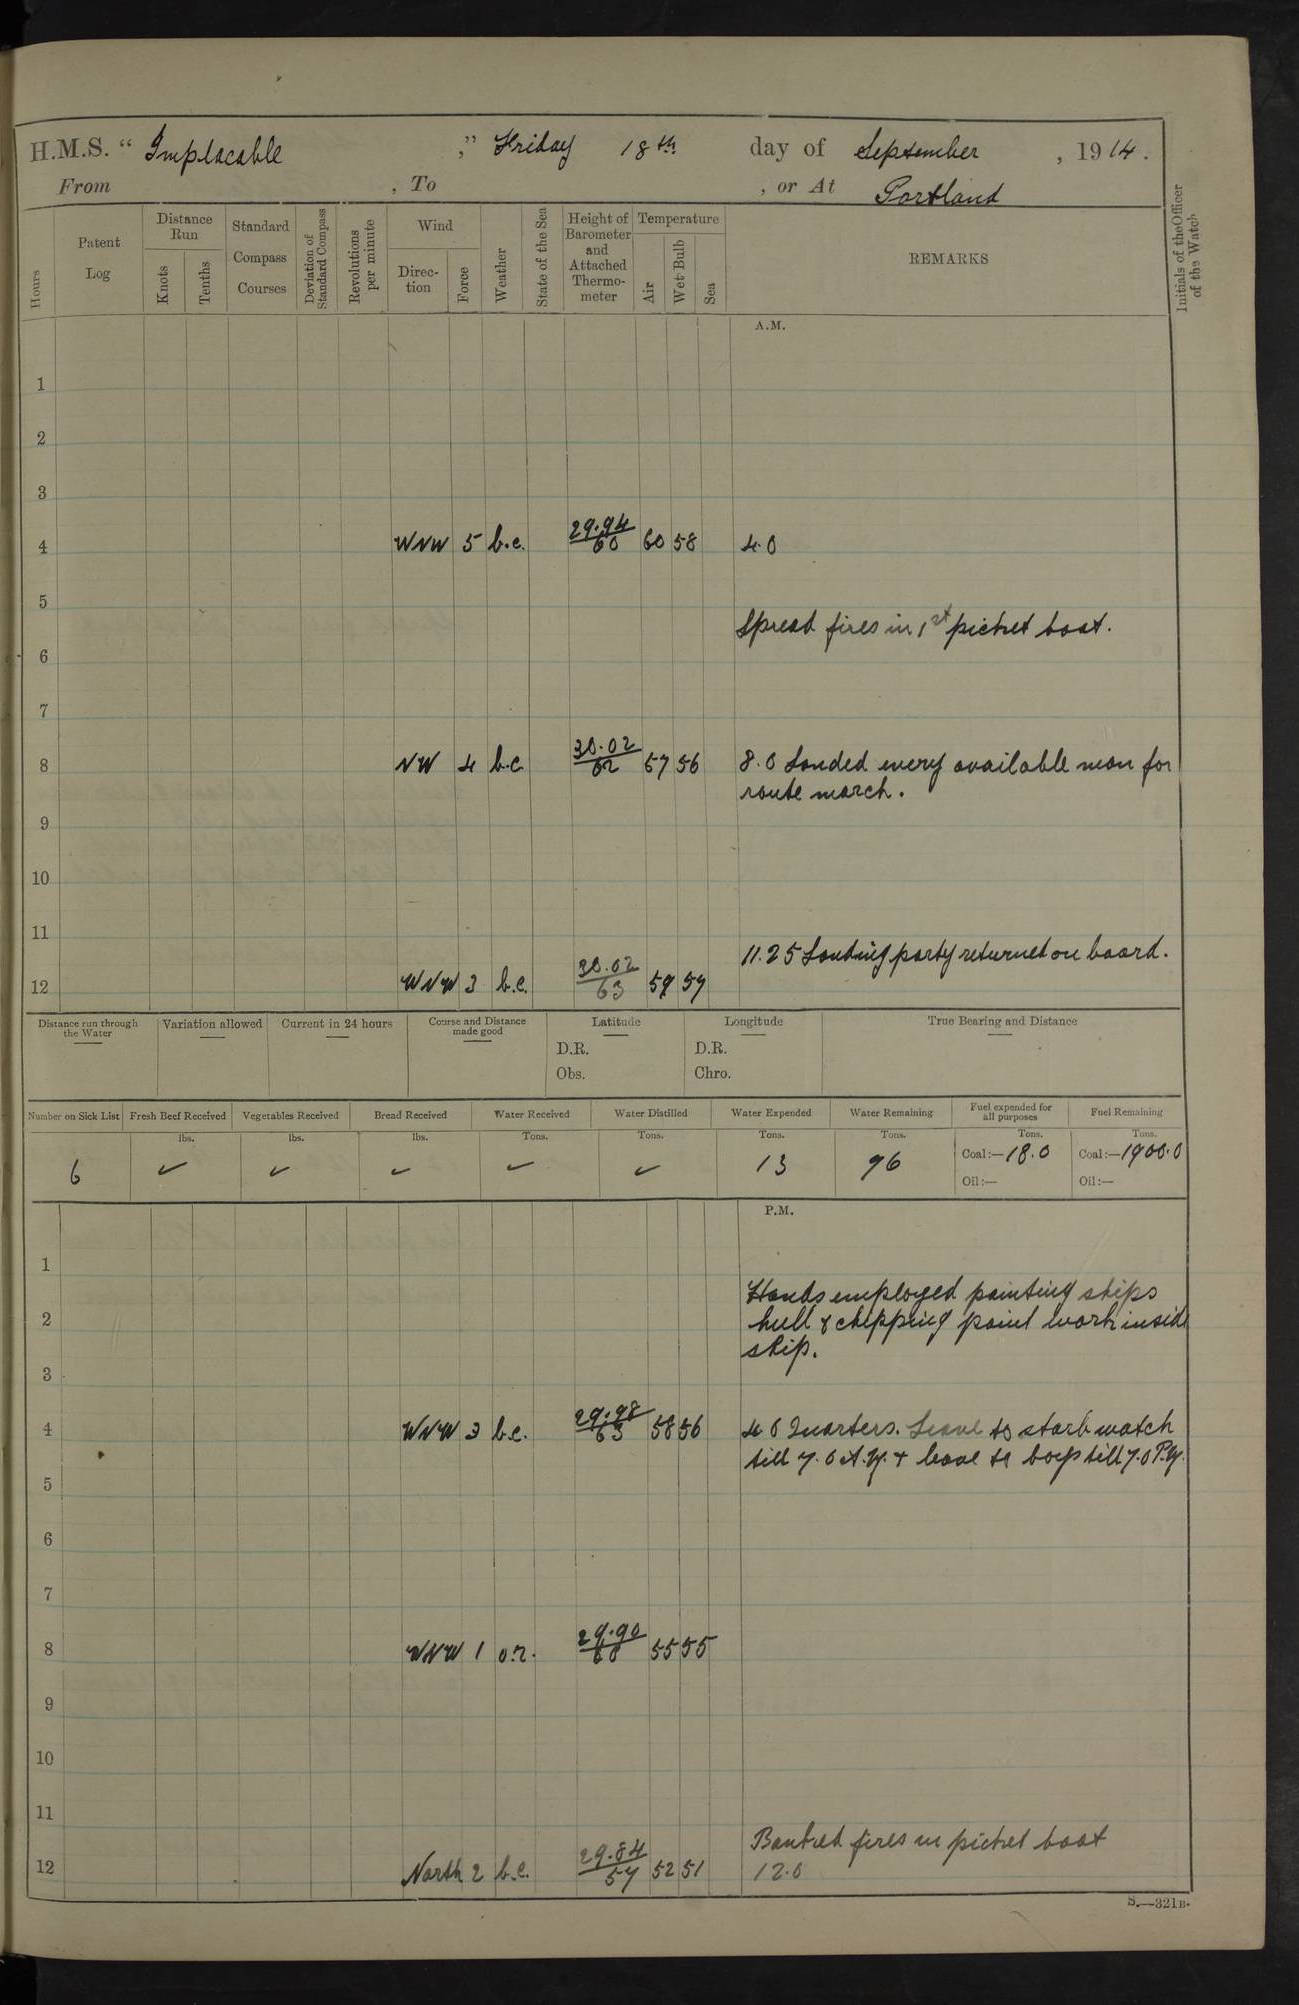 H.M.S. " Implacable ," Friday 18th day of September , 1914.
From , To , or At Portland
Hours
Patent Log
Distance Run
Knots
Tenths
Standard Compass Courses
Deviation of Standard Compass
Revolutions per minute
Wind
Direction
Force
Weather
State of the Sea
Height of Barometer and Attached Thermometer
Temperature
Air
Wet Bulb
Sea
REMARKS
Initials of the Officer of the Watch
A.M.
1
2
3
4 WNW 5 b.c. 29.94/60 60 58 4.0
5
Spread fires in 1st picket boat.
6
7
8 NW 4 b.c 30.02/62 57 56 8.0 Landed every available man for
route march.
9
10
11
11.25 Landing party returned on board.
12 WNW 3 b.c. 30.02/63 59 57
Distance run through the Water
Variation allowed
Current in 24 hours
Course and Distance made good
Latitude
D.R.
Obs.
Longitude
D.R.
Chro.
True Bearing and Distance
Number on Sick List Fresh Beef Received Vegetables Received Bread Received Water Received Water Distilled Water Expended Water Remaining Fuel expended for all purposes Fuel Remaining
lbs. lbs. lbs. Tons. Tons. Tons. Tons. Tons. Tons.
6 ✓ ✓ ✓ ✓ ✓ 13 96 Coal:—18.0 Coal:—1900.0
Oil:— Oil:—
P.M.
1
Hands employed painting ships
2 hull & chipping paint work inside
ship.
3
4 WNW 3 b.c. 29.98/63 58 56 4.0 Quarters. Leave to starb watch
till 7.0 A.M. + leave to boys till 7.0 P.M.
5
6
7
8 WNW 1 o.r. 29.90/60 55 55
9
10
11
Banked fires in picket boat
12 North 2 b.c. 29.84/57 52 51 12.0
S.—321B.